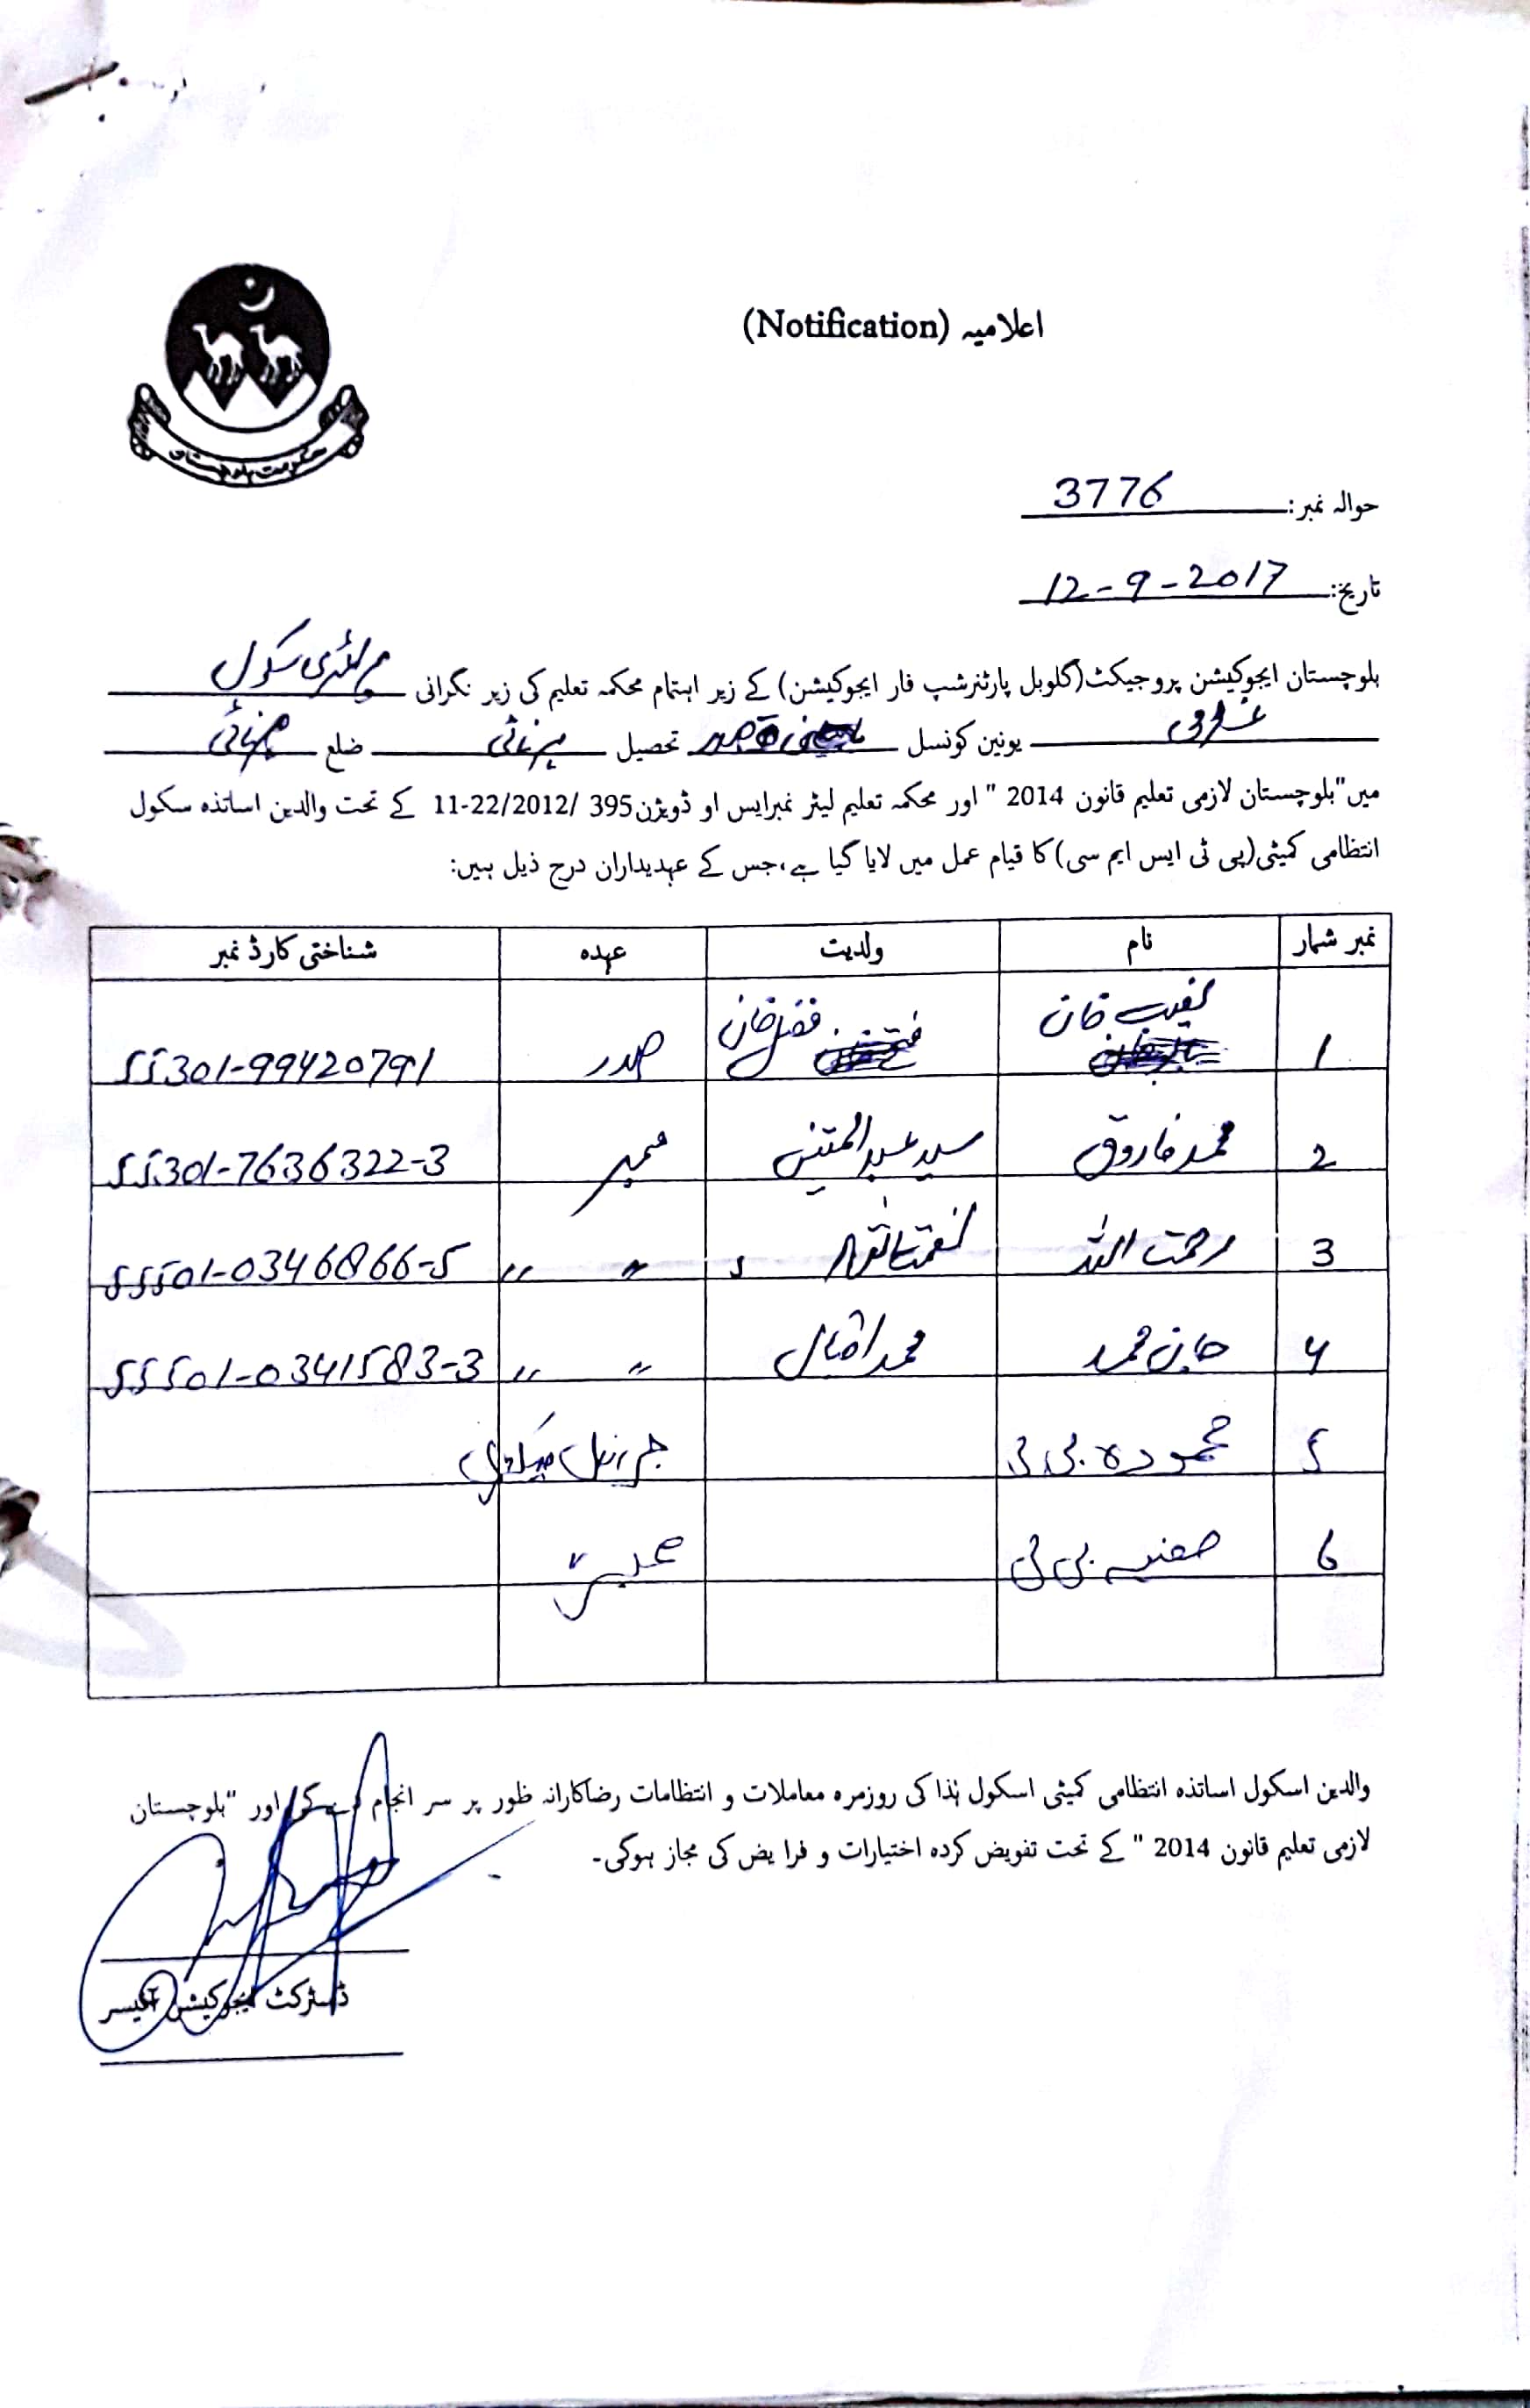 اعلامیہ (Notification)
حکومت بلوچستان
حوالہ نمبر: 3776
تاریخ: 12-9-2017
بلوچستان ایجوکیشن پروجیکٹ(گلوبل پارٹنرشپ فار ایجوکیشن) کے زیر اہتمام محکمہ تعلیم کی زیر نگرانی پرائمری سکول
یونین کونسل تحصیل ہرنائی ضلع ہرنائی
میں"بلوچستان لازمی تعلیم قانون 2014 " اور محکمہ تعلیم لیٹر نمبرایس او ڈویژن395 /11-22/2012 کے تحت والدین اساتذہ سکول
انتظامی کمیٹی(پی ٹی ایس ایم سی) کا قیام عمل میں لایا گیا ہے،جس کے عہدیداران درج ذیل ہیں:
نمبر شمار نام ولدیت عہدہ شناختی کارڈ نمبر
1 خان فضل خان صدر 55301-99420791
2 محمد فاروق سید عبدالمتین ممبر 55301-7636322-3
3 رحمت اللہ 〃 〃 55501-0346866-5
4 جان محمد محمد اقبال 〃 〃 55501-0341583-3
5 محمودہ بی بی جنرل سیکرٹری
6 صفیہ بی بی ممبر
والدین اسکول اساتذہ انتظامی کمیٹی اسکول ہٰذا کی روزمرہ معاملات و انتظامات رضاکارانہ طور پر سر انجام دے گی اور "بلوچستان
لازمی تعلیم قانون 2014 " کے تحت تفویض کردہ اختیارات و فرایض کی مجاز ہوگی۔
ڈسٹرکٹ ایجوکیشن آفیسر